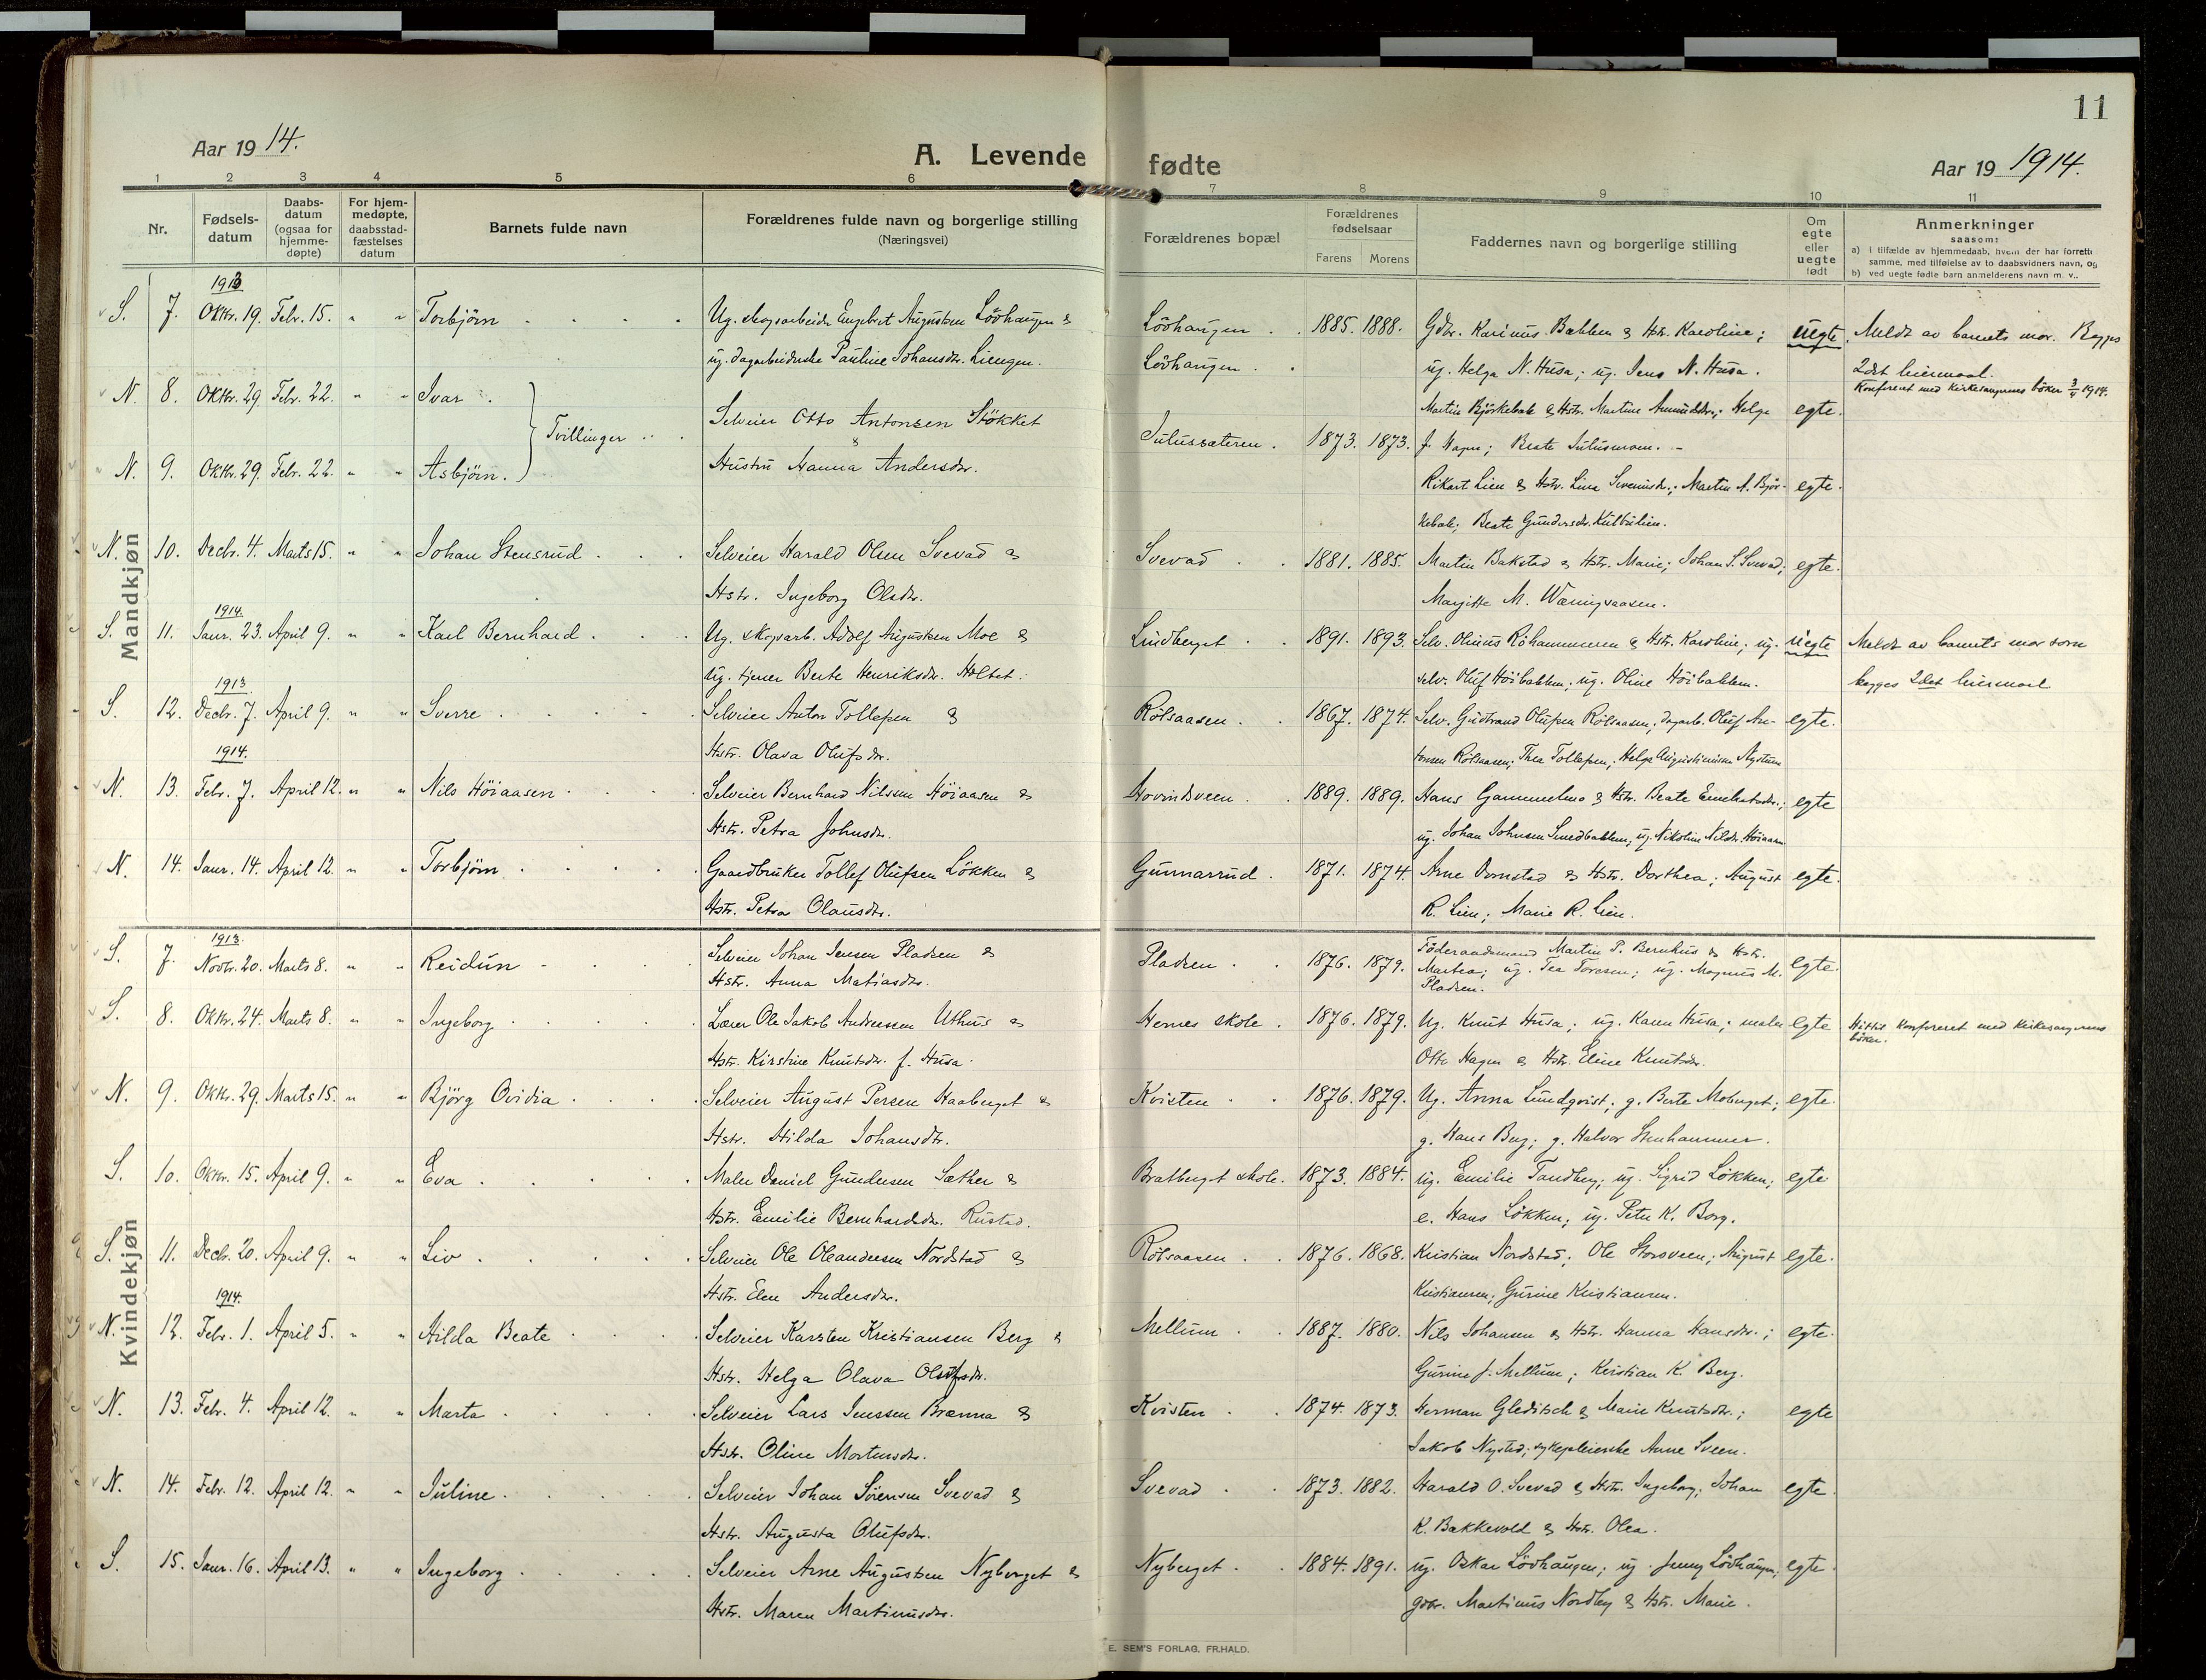 11
Aar 19 14.
A. Levende fødte
Aar 19 1914.
1 2 3 4 5 6 7 8 9 10 11
Nr.
Fødsels-
datum
Daabs-
datum
(ogsaa for
hjemme-
døpte)
For hjem-
medøpte,
daabsstad-
fæstelses
datum
Barnets fulde navn
Forældrenes fulde navn og borgerlige stilling
(Næringsvei)
Forældrenes bopæl
Forældrenes
fødselsaar
Farens Morens
Faddernes navn og borgerlige stilling
Om
egte
eller
uegte
født
Anmerkninger
saasom:
a) i tilfælde av hjemmedaab, hvem der har forrettet
samme, med tilføielse av to daabsvidners navn, og
b) ved uegte fødte barn anmelderens navn m. v..
Mandkjøn
1913
S. 7. Oktr. 19. Febr. 15. " " Torbjörn Ug. skogsarbeider Engebret Augustsen Lövhaugen & Lövhaugen 1885. 1888. Gdbr. Karinus Bakken & Hstr. Karoline; uegte. Meldt av barnets mor. Begges
ug. dagarbeiderske Pauline Johansdtr. Liengen. Lövhaugen ug. Helga N. Husa; ug. Jens N. Husa. 2det leiermaal.
Konfereret med kirkesangerens böker 3/4 1914.
N. 8. Oktr. 29. Febr. 22. " " Ivar Tvillinger Selveier Otto Antonsen Stökket Martin Björkebak & Hstr. Martine Amundsdtr.; Helge egte.
& Julussæteren. 1873. 1873. J. Hagen; Beate Julusmoen.
N. 9. Oktr. 29. Febr. 22. " " Asbjörn. Hustru Hanna Andersdtr. Rikart Lien & Hstr. Lina Severinsdtr.; Martin A. Björ- egte.
kebak; Beate Gundersdtr. Kulbulien.
N. 10. Decbr. 4. Marts 15. " " Johan Stensrud Selveier Harald Olsen Svevad & Svevad 1881. 1885. Martin Bakstad & Hstr. Marie; Johan S. Svevad; egte.
Hstr. Ingeborg Olsdtr. Margitte M. Wæringsaasen.
1914.
S. 11. Janr. 23. April 9. " " Karl Bernhard Ug. skogsarb. Adolf Augustsen Moe & Lindberget 1891. 1893. Selv. Olinus Röhammeren & Hstr. Karoline; ug. uegte Meldt av barnets mor som
Ug. tjener Berte Henriksdtr. Holtet. selv. Oluf Höibakken; ug. Oline Höibakken. begges 2det leiermaal
1913
S. 12. Decbr. 7. April 9. " " Sverre Selveier Anton Tollefsen & Rölsaasen 1867. 1874. Selv. Gudbrand Olufsen Rölsaasen; dagarb. Oluf An- egte.
Hstr. Olava Olufsdtr. tonsen Rölsaasen; Thea Tollefsen; Helga Augustinusen Nystuen
1914.
N. 13. Febr. 7. April 12. " " Nils Höiaasen Selveier Bernhard Nilsen Höiaasen & Hovindsveen 1889. 1889. Hans Gammelmo & Hstr. Beate Embretsdtr.; egte
Hstr. Petra Johnsdtr. ug. Johan Johnsen Smedbakken; ug. Nikoline Nilsdtr. Höiaasen
N. 14. Janr. 14. April 12. " " Torbjörn Gaardbruker Tollef Olufsen Lökken & Gunnarrud 1871. 1874. Arne Ornstad & Hstr. Dorthea; August egte.
Hstr. Petra Olausdtr. R. Lien; Marie R. Lien.
Kvindekjøn
1913
S. 7. Novbr. 20. Marts 8. " " Reidun Selveier Johan Jensen Pladsen & Pladsen 1876. 1879. Föderaadsmand Martin P. Bernhus & Hstr. egte.
Hstr. Anna Matiasdtr. Martea; ug. Tea Toresen; ug. Magnus M.
Pladsen.
S. 8. Oktr. 24. Marts 8. " " Ingeborg Lærer Ole Jakob Andreassen Uthus & Hernes skole 1876. 1879. Ug. Knut Husa; ug. Karen Husa; maler egte Hittil konfereret med kirkesangerens
böker.
Hstr. Kirstine Knutsdtr. f. Husa. Otto Hagen & Hstr. Eline Knutsdtr.
N. 9. Oktr. 29. Marts 15. " " Björg Ovidia Selveier August Persen Kaaberget & Kvisten 1876. 1879. Ug. Anna Lundqvist; g. Berte Moberget; egte.
Hstr. Hilda Johansdtr. g. Hans Berg; g. Halvor Stenhammer.
S. 10. Oktr. 15. April 9. " " Eva Maler Daniel Gundersen Sæther & Bratberget skole. 1873. 1884. ug. Emilie Tandberg; ug. Sigrid Lökken; egte
Hstr. Emilie Bernhardsdtr. Rustad. e. Hans Lökken; ug. Peter K. Borg.
S. 11. Decbr. 20. April 9. " " Liv Selveier Ole Oleandersen Nordstad & Rölsaasen 1876. 1868. Kristian Nordstad; Ole Storsveen; August egte.
Hstr. Elen Andersdtr. Kristiansen; Gurine Kristiansen.
1914.
N. 12. Febr. 1. April 5. " " Hilda Beate Selveier Karsten Kristiansen Berg & Mellum 1887. 1880. Nils Johansen & Hstr. Hanna Hansdtr.; egte.
Hstr. Helga Olava Olufsdtr. Gurine J. Mellum; Kristian K. Berg.
N. 13. Febr. 4. April 12. " " Marta Selveier Lars Jenssen Brænna & Kvisten 1874. 1873. Herman Gleditsch & Marie Knutsdtr.; egte
Hstr. Oline Mortensdtr. Jakob Nysted; sykepleierske Anne Sveen.
N. 14. Febr. 12. April 12. " " Juline Selveier Johan Sörensen Svevad & Svevad 1873. 1882. Harald O. Svevad & Hstr. Ingeborg; Johan egte.
Hstr. Augusta Olufsdtr. K. Bakkevold & Hstr. Olea.
S. 15. Janr. 16. April 13. " " Ingeborg Selveier Arne Augustsen Nyberget & Nyberget 1884. 1891. ug. Oskar Lövhaugen; ug. Jenny Lövhaugen; egte.
Hstr. Maren Martinusdtr. gbr. Martinus Nordby & Hstr. Marie.
E. SEM'S FORLAG, FR.HALD.